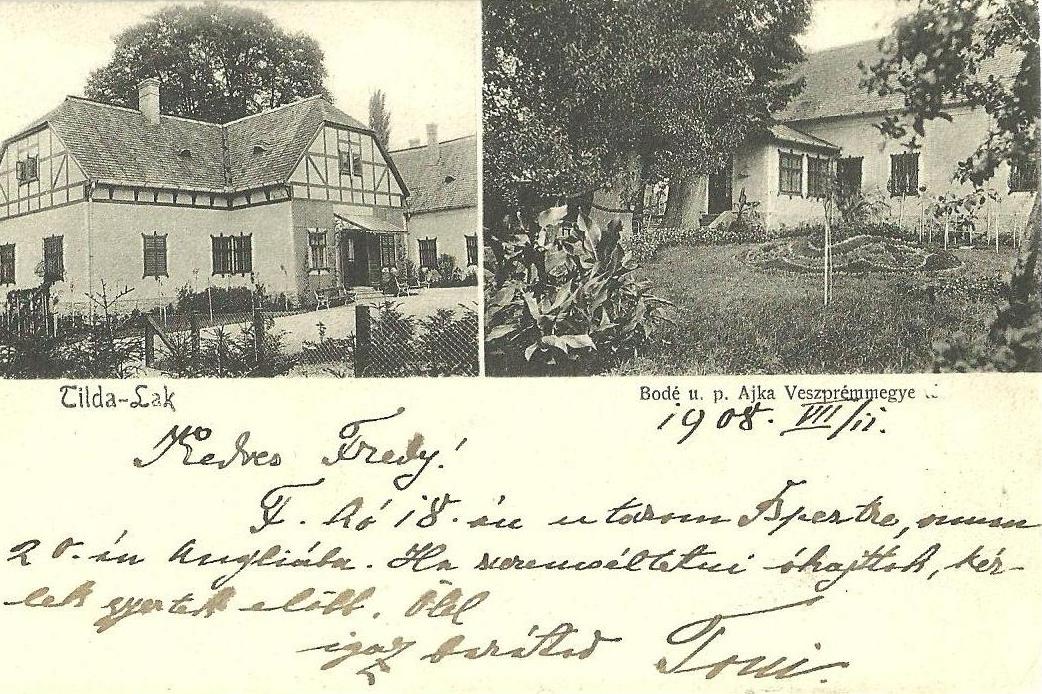 Tilda-Lak
Bodé u. p. Ajka Veszprémmegye
1908. VII/11.
Kedves Fredy!
F. hó 18.-án utazom Bpestre, onnan
20.-án Angliába. Ha szerencséltetni óhajtok, kér-
lek gyertek előbb. Ölel
igaz barátod Toni.